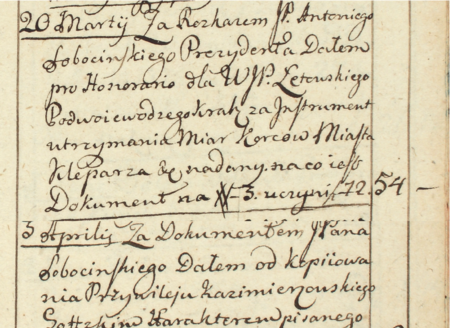 20 Martij Za Rozkazem JP. Antoniego
Sobocinskiego Prezydenta Dałem
pro Honorario dla WJP. Letowskiego
Podwoiewodzego Krak. za Instrument
utrzymania Miar Korcow Miasta
Kleparza &c nadany. na co iest
Dokument na # 3. uczyni f 72. 54 —
3 Aprilis Za Dokumentem JPana
Sobocinskiego Dałem od kopiiowa
nia Przywileju Kazimierzowskiego
Charakterem pisanego